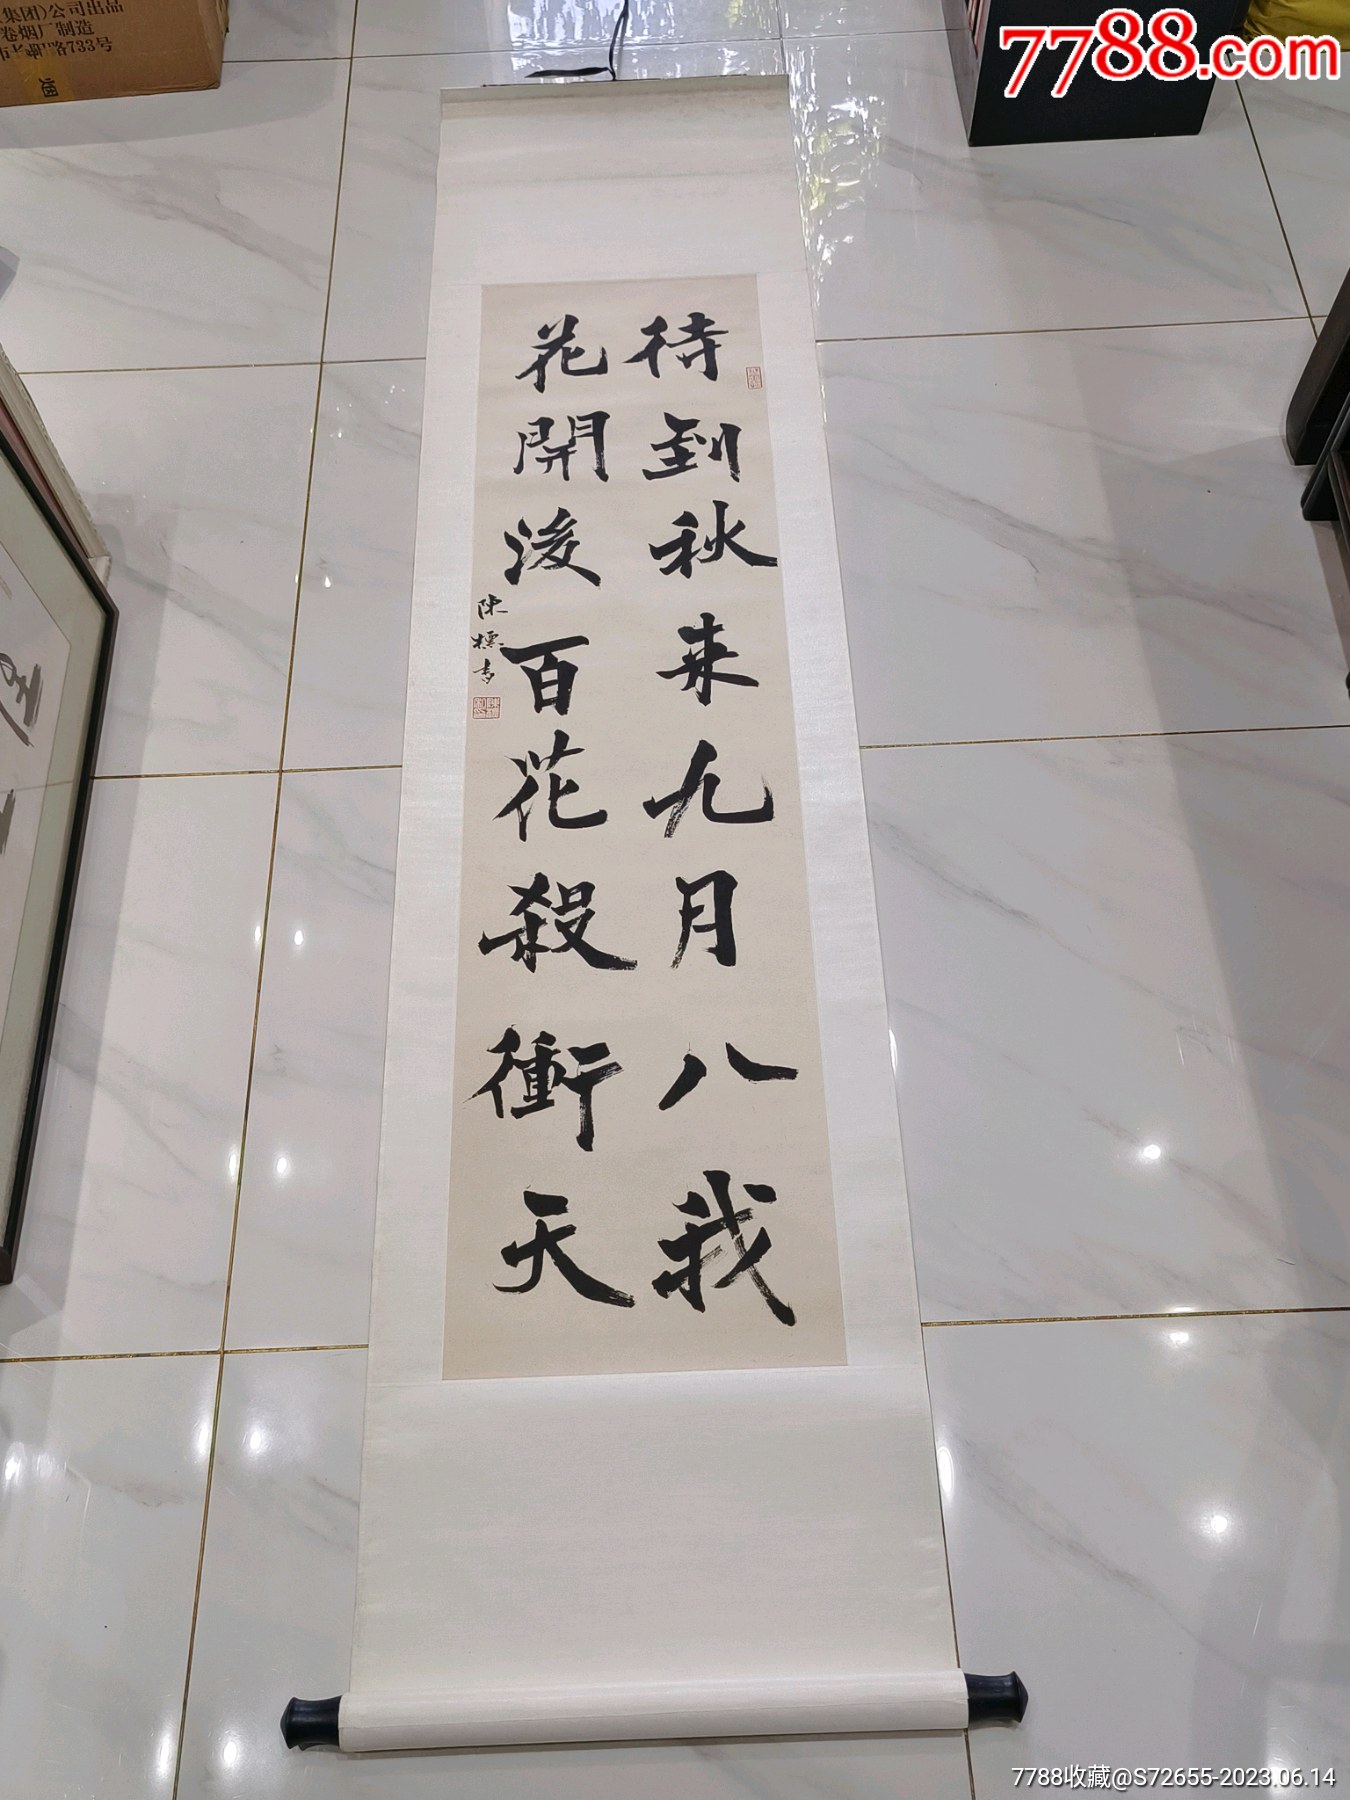 集团)公司出品
卷烟厂制造
市长阳路733号
7788.com
待到秋来九月八我
花開後百花殺衝天
陳標書
7788收藏@S72655-2023.06.14